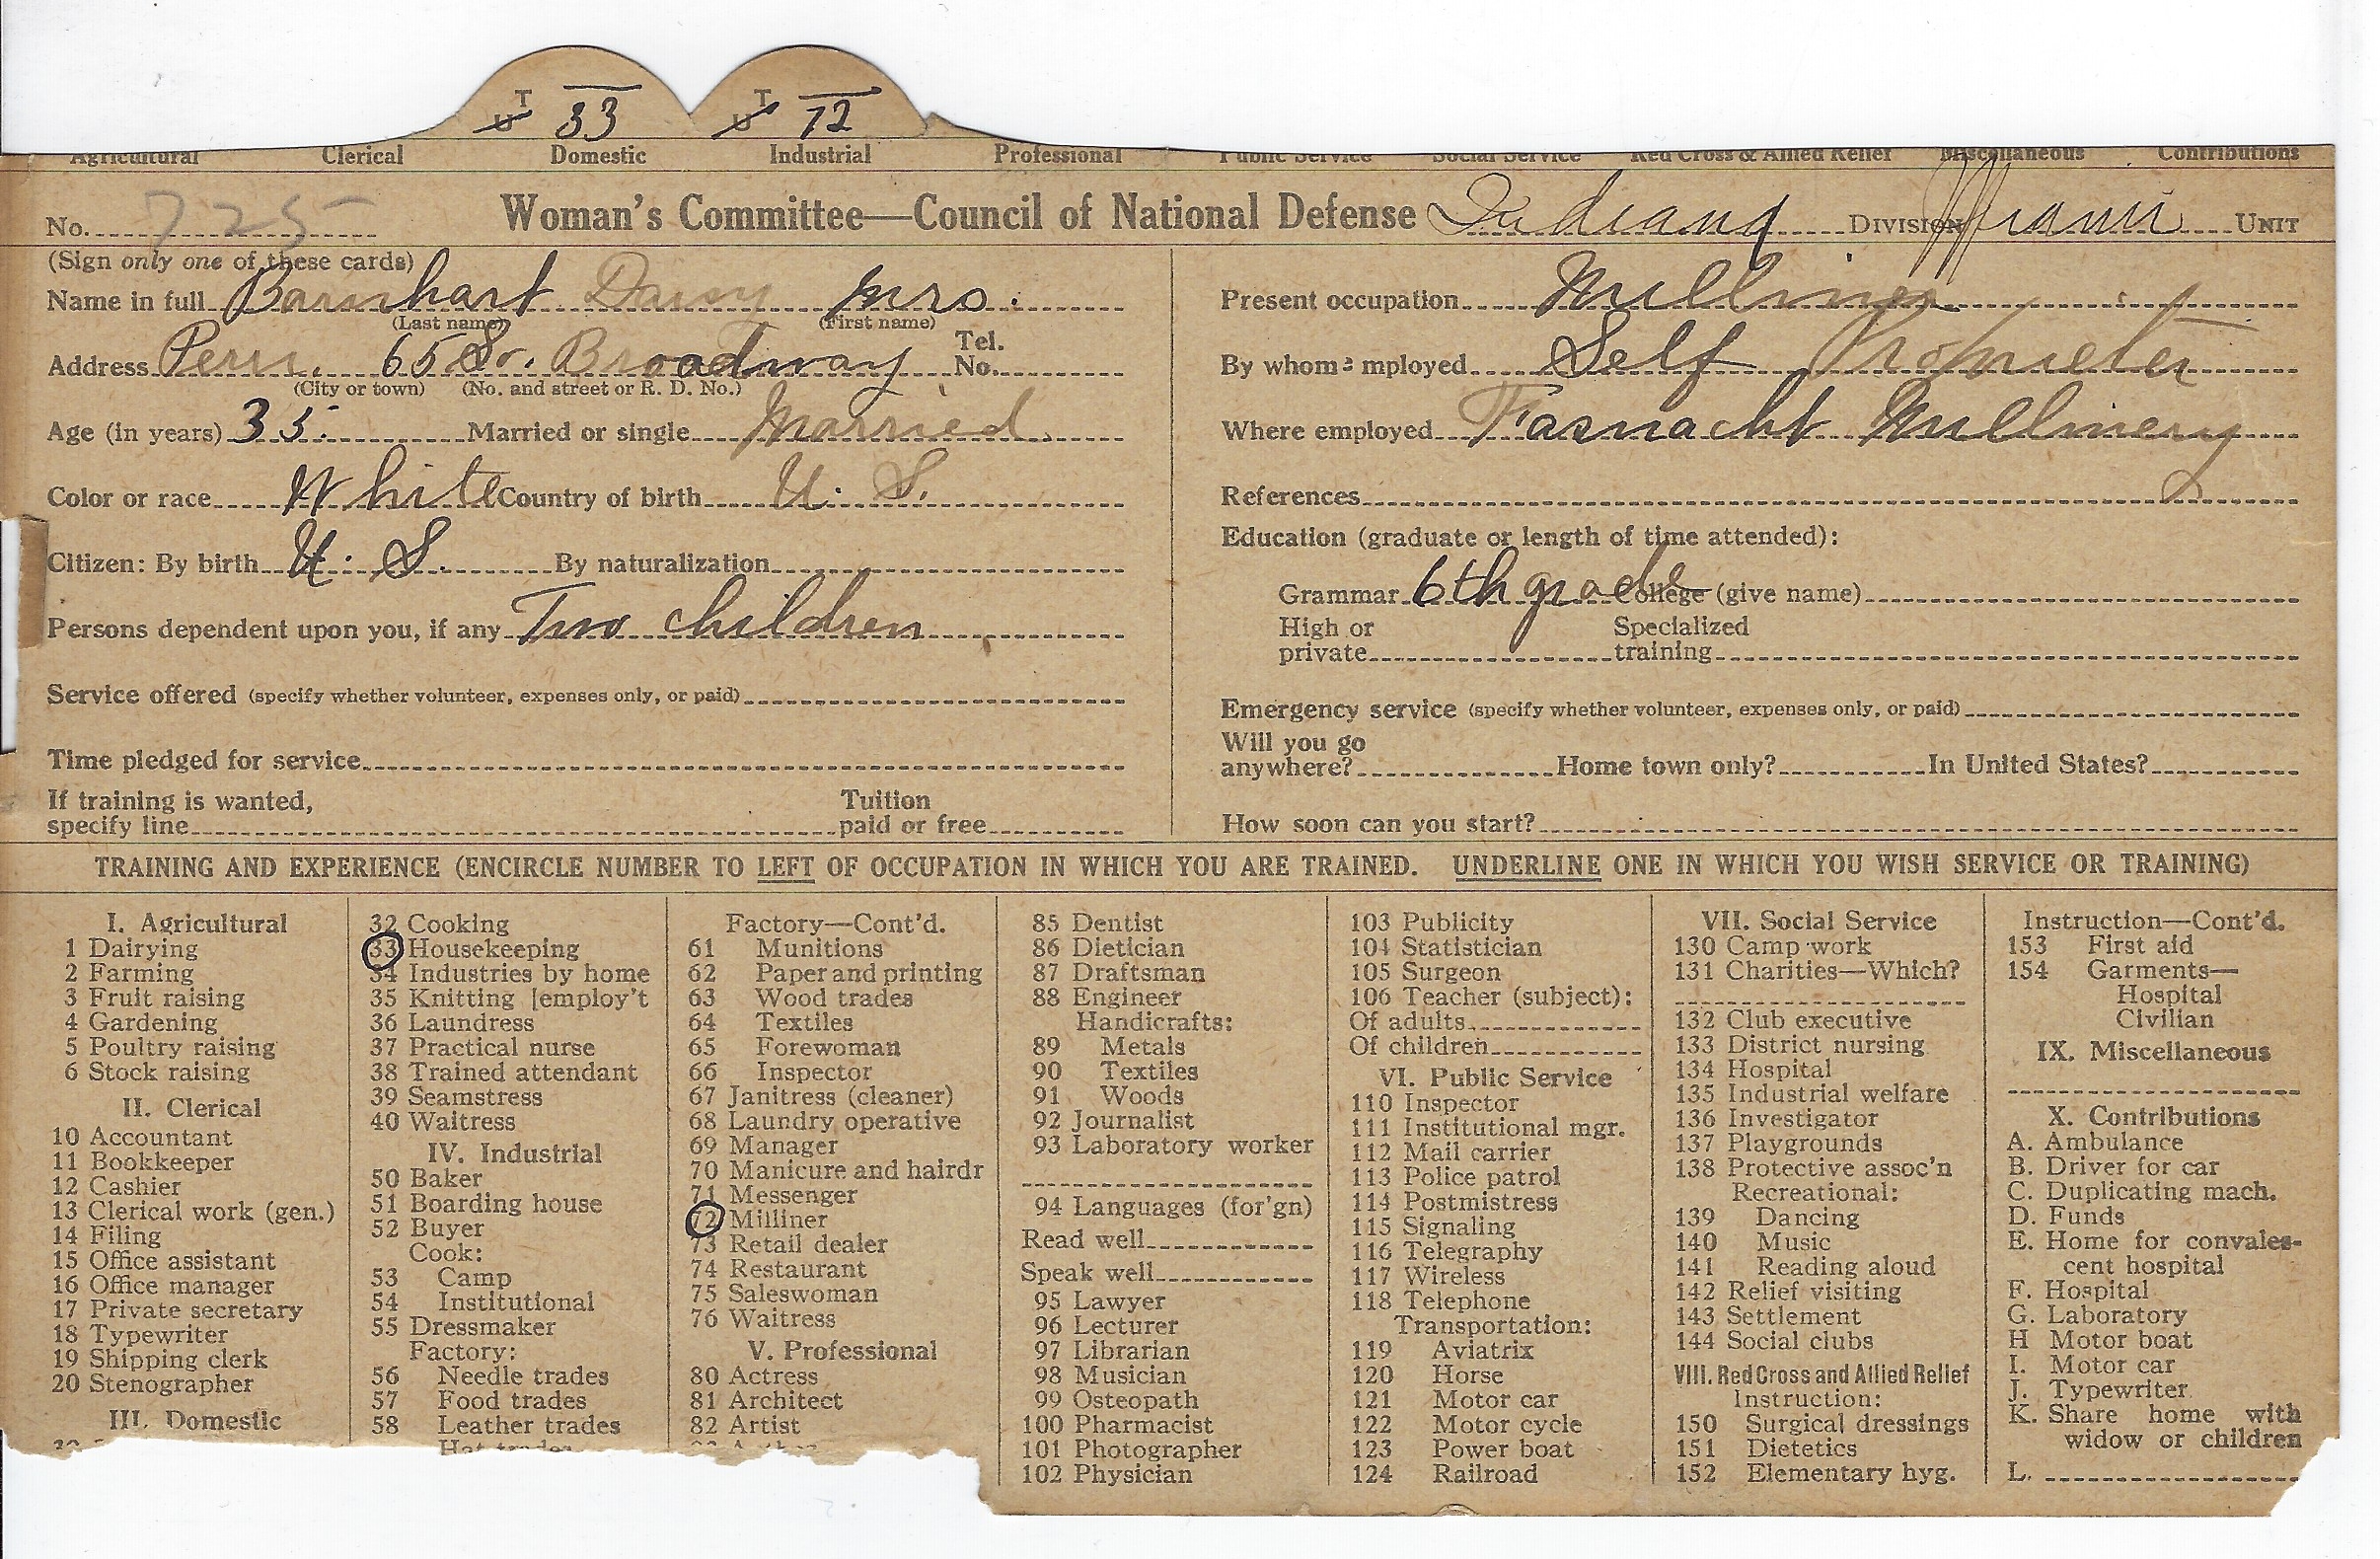 T U 33 T U 72
Agricultural Clerical Domestic Industrial Professional Public Service Social Service Red Cross & Allied Relief Miscellaneous Contributions
No. 725 Woman's Committee—Council of National Defense Indiana DIVISION Miami UNIT
(Sign only one of these cards)
Name in full Barnhart Daisy Mrs.
(Last name) (First name)
Address Peru. 65 So. Broadway Tel. No.
(City or town) (No. and street or R. D. No.)
Age (in years) 35. Married or single Married
Color or race White Country of birth U. S.
Citizen: By birth U. S. By naturalization
Persons dependent upon you, if any Two children
Service offered (specify whether volunteer, expenses only, or paid)
Time pledged for service
If training is wanted, specify line Tuition paid or free
Present occupation Milliner
By whom employed Self Proprietor
Where employed Fasnacht Millinery
References
Education (graduate or length of time attended):
Grammar 6th grade College (give name)
High or private Specialized training
Emergency service (specify whether volunteer, expenses only, or paid)
Will you go anywhere? Home town only? In United States?
How soon can you start?
TRAINING AND EXPERIENCE (ENCIRCLE NUMBER TO LEFT OF OCCUPATION IN WHICH YOU ARE TRAINED. UNDERLINE ONE IN WHICH YOU WISH SERVICE OR TRAINING)
I. Agricultural
1 Dairying
2 Farming
3 Fruit raising
4 Gardening
5 Poultry raising
6 Stock raising
II. Clerical
10 Accountant
11 Bookkeeper
12 Cashier
13 Clerical work (gen.)
14 Filing
15 Office assistant
16 Office manager
17 Private secretary
18 Typewriter
19 Shipping clerk
20 Stenographer
III. Domestic
32 Cooking
33 Housekeeping
34 Industries by home
35 Knitting [employ't
36 Laundress
37 Practical nurse
38 Trained attendant
39 Seamstress
40 Waitress
IV. Industrial
50 Baker
51 Boarding house
52 Buyer
Cook:
53 Camp
54 Institutional
55 Dressmaker
Factory:
56 Needle trades
57 Food trades
58 Leather trades
Hat trades
Factory—Cont'd.
61 Munitions
62 Paper and printing
63 Wood trades
64 Textiles
65 Forewoman
66 Inspector
67 Janitress (cleaner)
68 Laundry operative
69 Manager
70 Manicure and hairdr
71 Messenger
72 Milliner
73 Retail dealer
74 Restaurant
75 Saleswoman
76 Waitress
V. Professional
80 Actress
81 Architect
82 Artist
85 Dentist
86 Dietician
87 Draftsman
88 Engineer
Handicrafts:
89 Metals
90 Textiles
91 Woods
92 Journalist
93 Laboratory worker
94 Languages (for'gn)
Read well
Speak well
95 Lawyer
96 Lecturer
97 Librarian
98 Musician
99 Osteopath
100 Pharmacist
101 Photographer
102 Physician
103 Publicity
104 Statistician
105 Surgeon
106 Teacher (subject):
Of adults
Of children
VI. Public Service
110 Inspector
111 Institutional mgr.
112 Mail carrier
113 Police patrol
114 Postmistress
115 Signaling
116 Telegraphy
117 Wireless
118 Telephone
Transportation:
119 Aviatrix
120 Horse
121 Motor car
122 Motor cycle
123 Power boat
124 Railroad
VII. Social Service
130 Camp work
131 Charities—Which?
132 Club executive
133 District nursing
134 Hospital
135 Industrial welfare
136 Investigator
137 Playgrounds
138 Protective assoc'n
Recreational:
139 Dancing
140 Music
141 Reading aloud
142 Relief visiting
143 Settlement
144 Social clubs
VIII. Red Cross and Allied Relief
Instruction:
150 Surgical dressings
151 Dietetics
152 Elementary hyg.
Instruction—Cont'd.
153 First aid
154 Garments—
Hospital
Civilian
IX. Miscellaneous
X. Contributions
A. Ambulance
B. Driver for car
C. Duplicating mach.
D. Funds
E. Home for convales-
cent hospital
F. Hospital
G. Laboratory
H Motor boat
I. Motor car
J. Typewriter
K. Share home with
widow or children
L.